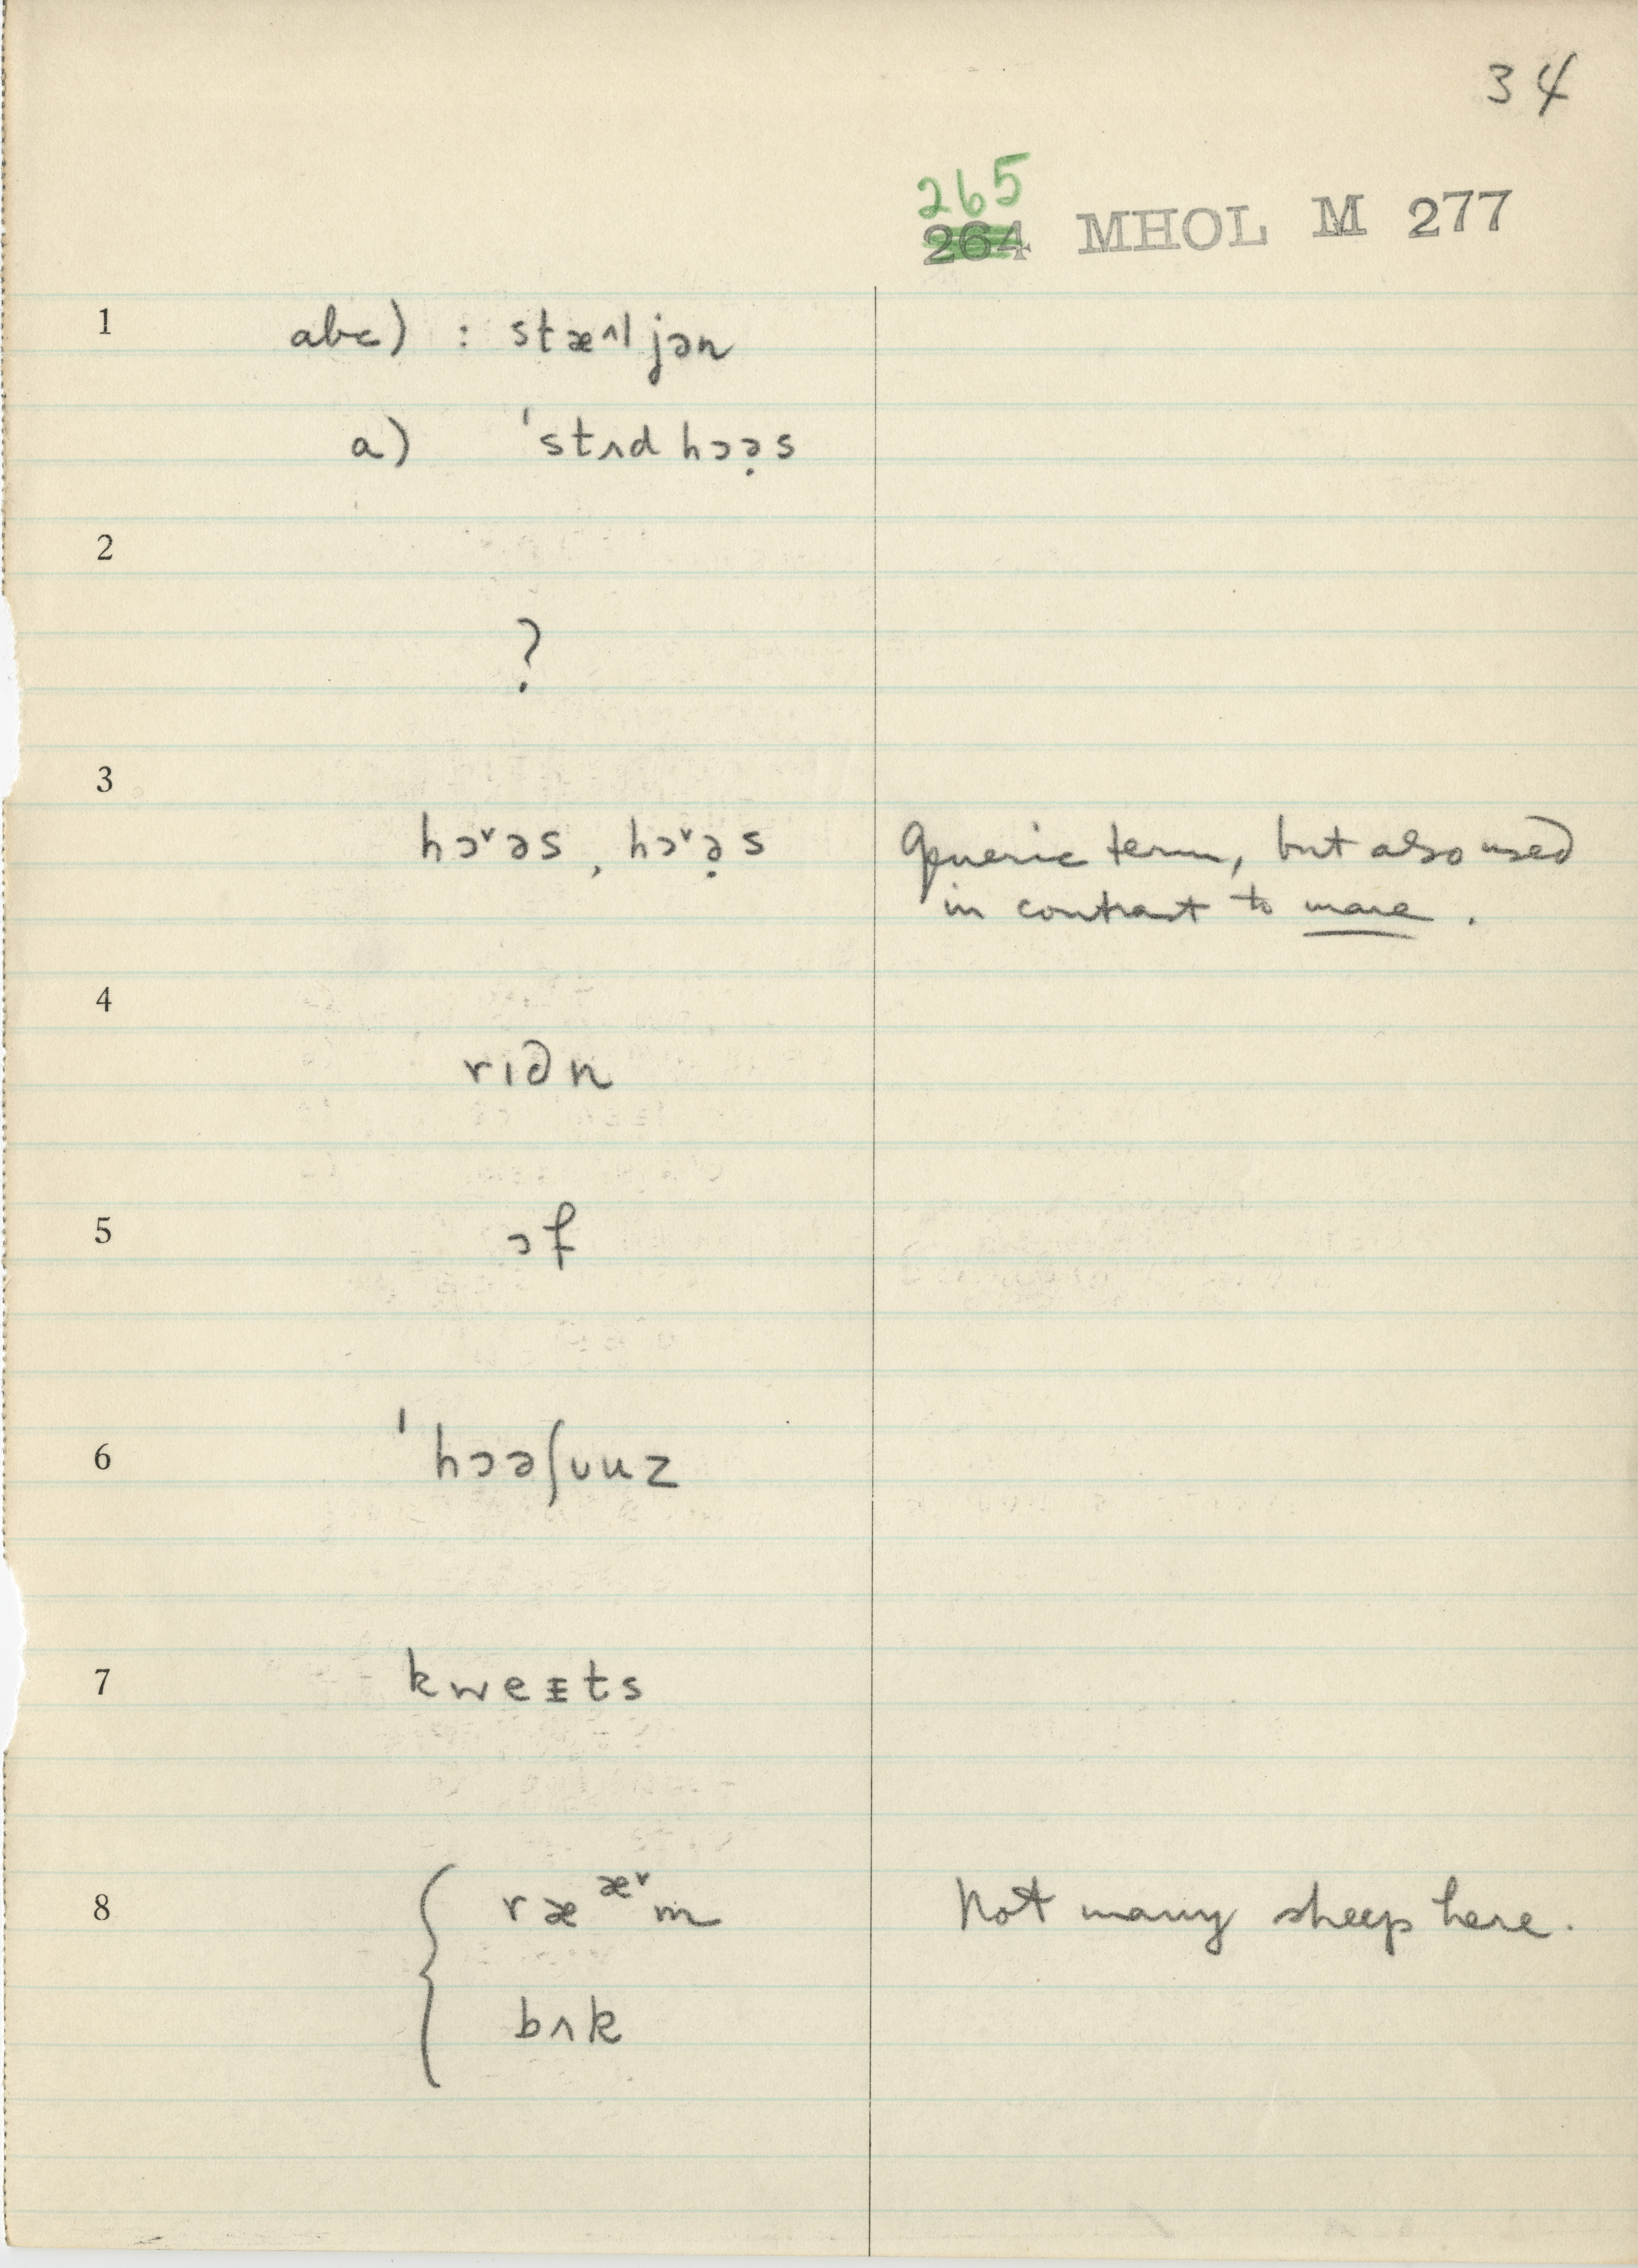 34
265
264 MHOL M 277
1 abc) : stæ^l jən
a) ˈstʌd hɔə̣s
2
?
3
hɔ˅əs, hɔ˅ə̣s Generic term, but also used
in contrast to mare.
4
riən
5 ɔf
6 ˈhɔəʃuuz
7 kweɪts
8 { ræ æ˅ m Not many sheep here.
bʌk